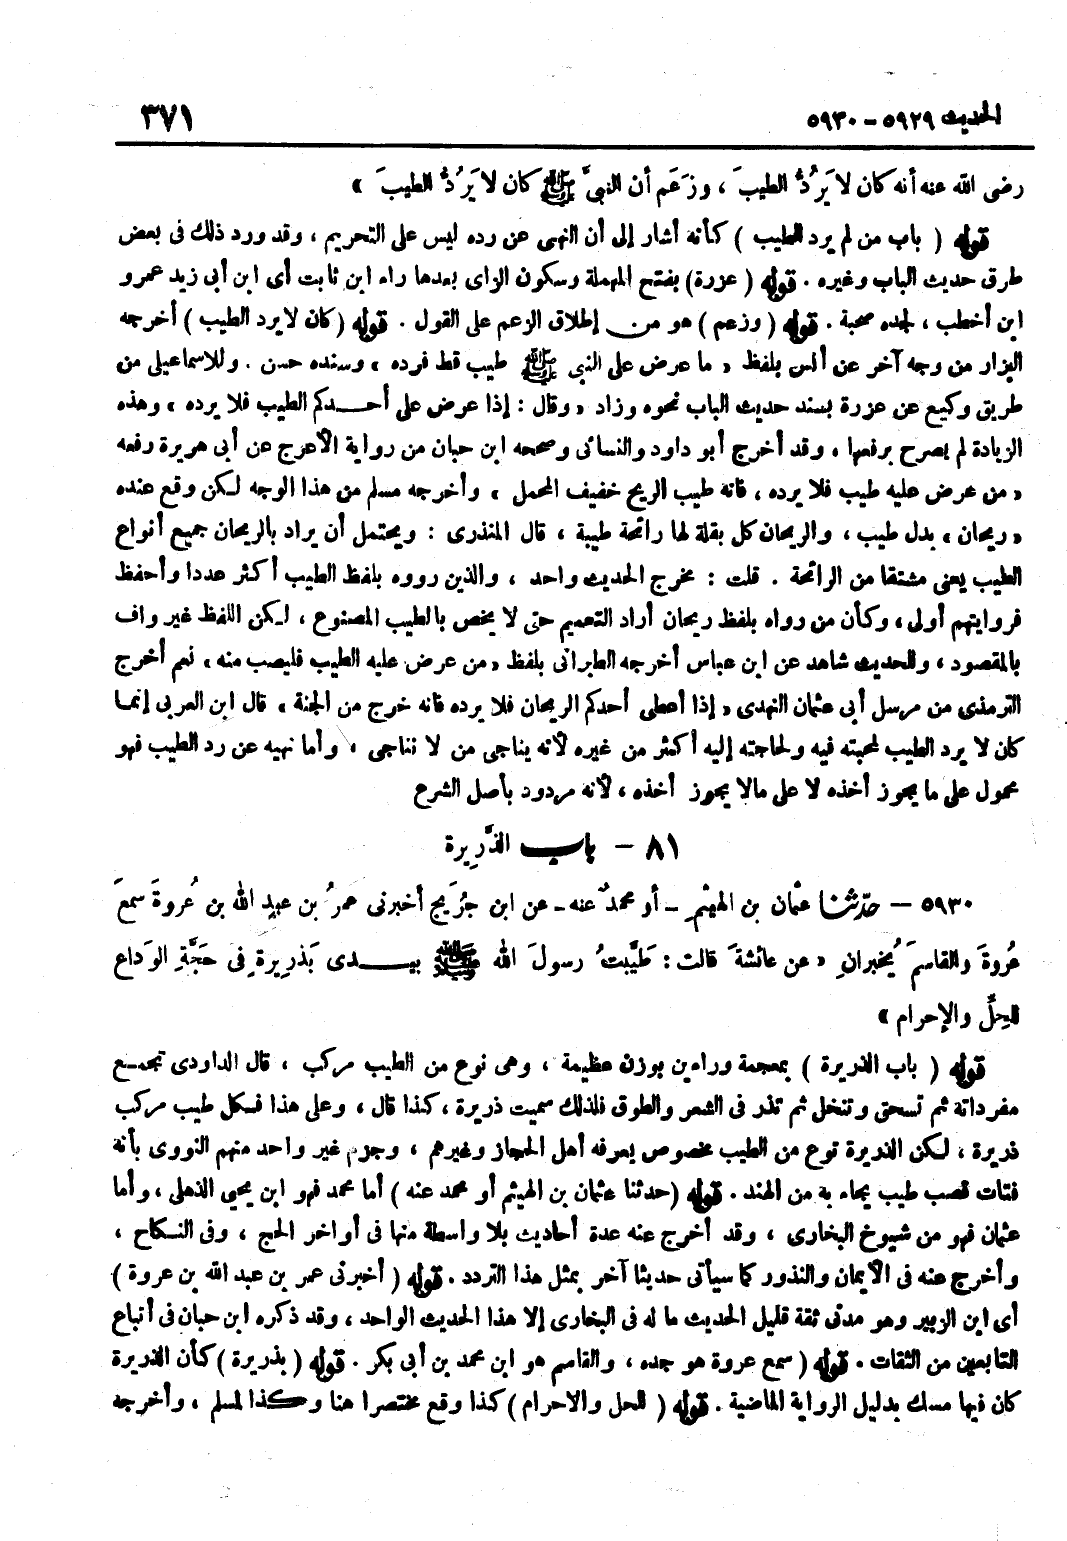 الحديث ٥٩٢٩ - ٥٩٣٠
٣٧١
رضى الله عنه أنه كان لا يَرُدُّ الطيبَ ، وزَعَم أن النبيَّ ﷺ كان لا يَرُدُّ الطيبَ »
قوله ( باب من لم يرد الطيب ) كأنه أشار إلى أن النهى عن رده ليس على التحريم ، وقد ورد ذلك فى بعض
طرق حديث الباب وغيره . قوله ( عزرة ) بفتح المهملة وسكون الزاى بعدها راء ابن ثابت أى ابن أبى زيد عمرو
ابن أخطب ، لجده صحبة . قوله ( وزعم ) هو من إطلاق الزعم على القول . قوله ( كان لا يرد الطيب ) أخرجه
البزار من وجه آخر عن أنس بلفظ « ما عرض على النبى ﷺ طيب قط فرده » وسنده حسن . وللاسماعيلى من
طريق وكيع عن عزرة بسند حديث الباب نحوه وزاد « وقال : إذا عرض على أحدكم الطيب فلا يرده » وهذه
الزيادة لم يصرح برفعها ، وقد أخرج أبو داود والنسائى وصححه ابن حبان من رواية الأعرج عن أبى هريرة رفعه
« من عرض عليه طيب فلا يرده ، فانه طيب الريح خفيف المحمل » وأخرجه مسلم من هذا الوجه لكن وقع عنده
« ريحان » بدل طيب ، والريحان كل بقلة لها رائحة طيبة ، قال المنذرى : ويحتمل أن يراد بالريحان جميع أنواع
الطيب يعنى مشتقا من الرائحة . قلت : مخرج الحديث واحد ، والذين رووه بلفظ الطيب أكثر عددا وأحفظ
فروايتهم أولى ، وكأن من رواه بلفظ ريحان أراد التعميم حتى لا يخص بالطيب المصنوع ، لكن اللفظ غير واف
بالمقصود ، وللحديث شاهد عن ابن عباس أخرجه الطبرانى بلفظ « من عرض عليه الطيب فليصب منه » نعم أخرج
الترمذى من مرسل أبى عثمان النهدى « إذا أعطى أحدكم الريحان فلا يرده فانه خرج من الجنة » قال ابن العربى إنما
كان لا يرد الطيب لمحبته فيه ولحاجته إليه أكثر من غيره لأنه يناجى من لا نناجى ، وأما نهيه عن رد الطيب فهو
محمول على ما يجوز أخذه لا على مالا يجوز أخذه ، لأنه مردود بأصل الشرع
٨١ - باب الذَّرِيرة
٥٩٣٠ - حدّثنا عثمان بن الهيثم - أو محمدٌ عنه - عن ابن جُرَيج أخبرنى عمرُ بن عبدِ الله بن عُروةَ سمعَ
عُروةَ والقاسمَ يُخبرانِ « عن عائشةَ قالت : طَيَّبتُ رسولَ الله ﷺ بيدى بَذرِيرةٍ فى حَجَّةِ الوَداع
للحِلِّ والإحرام »
قوله ( باب الذريرة ) بمعجمة وراءين بوزن عظيمة ، وهى نوع من الطيب مركب ، قال الداودى تجمع
مفرداتة ثم تسحق وتنخل ثم تذر فى الشعر والطوق فلذلك سميت ذريرة ، كذا قال ، وعلى هذا فكل طيب مركب
ذريرة ، لكن الذريرة نوع من الطيب مخصوص يعرفه أهل الحجاز وغيرهم ، وجزم غير واحد منهم النووى بأنه
فتات قصب طيب يجاء به من الهند . قوله ( حدثنا عثمان بن الهيثم أو محمد عنه ) أما محمد فهو ابن يحيى الذهلى ، وأما
عثمان فهو من شيوخ البخارى ، وقد أخرج عنه عدة أحاديث بلا واسطة منها فى أواخر الحج ، وفى النكاح ،
وأخرج عنه فى الأيمان والنذور كما سيأتى حديثا آخر بمثل هذا التردد . قوله ( أخبرنى عمر بن عبد الله بن عروة )
أى ابن الزبير وهو مدنى ثقة قليل الحديث ما له فى البخارى إلا هذا الحديث الواحد ، وقد ذكره ابن حبان فى أتباع
التابعين من الثقات . قوله ( سمع عروة هو جده ، والقاسم هو ابن محمد بن أبى بكر . قوله ( بذريرة ) كأن الذريرة
كان فيها مسك بدليل الرواية الماضية . قوله ( للحل والاحرام ) كذا وقع مختصرا هنا وكذا لمسلم ، وأخرجه